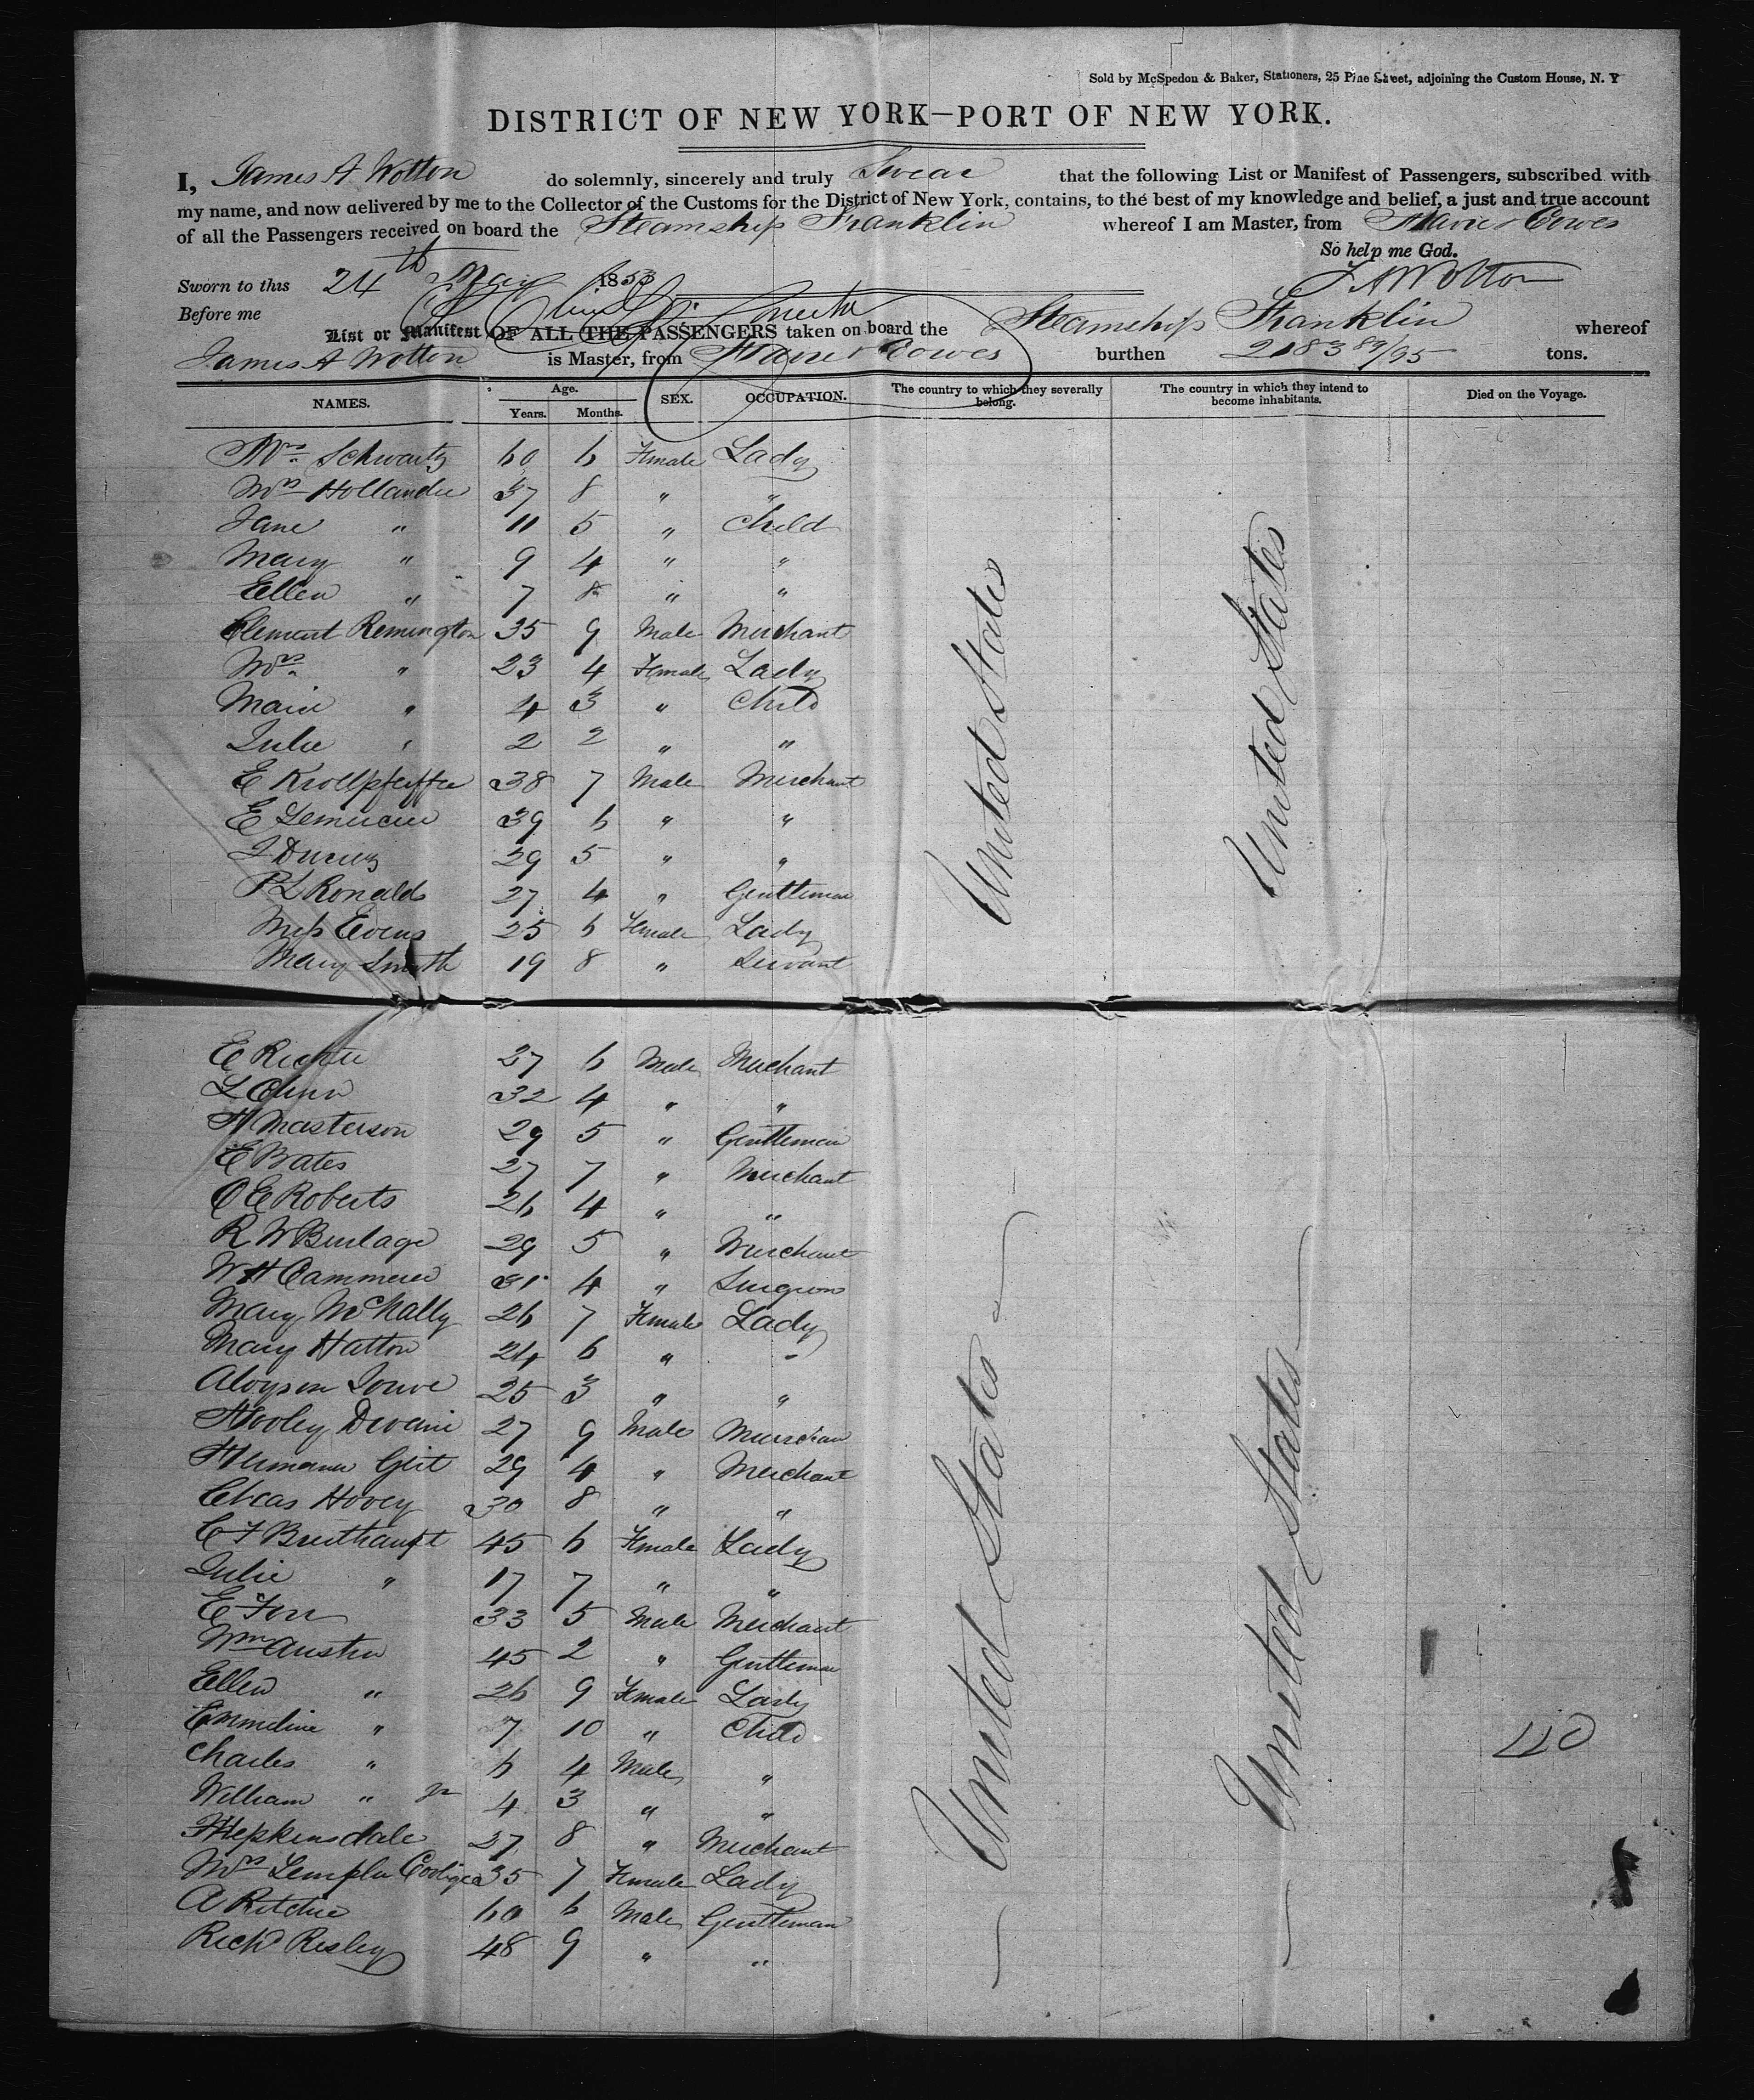 Sold by McSpedon & Baker, Stationers, 25 Pine Street, adjoining the Custom House, N. Y
DISTRICT OF NEW YORK—PORT OF NEW YORK.
I, James A Wotton do solemnly, sincerely and truly Swear that the following List or Manifest of Passengers, subscribed with
my name, and now delivered by me to the Collector of the Customs for the District of New York, contains, to the best of my knowledge and belief, a just and true account
of all the Passengers received on board the Steamship Franklin whereof I am Master, from Havre & Cowes
So help me God.
Sworn to this 24th May 1853 J A Wotton
Before me
List or Manifest OF ALL THE PASSENGERS taken on board the Steamship Franklin whereof
James A Wotton is Master, from Havre & Cowes burthen 2183 89/95 tons.
NAMES. Age. Years. Months. SEX. OCCUPATION. The country to which they severally belong. The country in which they intend to become inhabitants. Died on the Voyage.
Mrs Schwartz 60 6 Female Lady
Mrs Hollander 37 8 " "
Jane " 11 5 " Child
Mary " 9 4 " "
Ellen " 7 8 " "
Clement Remington 35 9 Male Merchant
Mrs " 23 4 Female Lady
Marie " 4 3 " Child
Julie " 2 2 " "
E Krollpfeiffer 38 7 Male Merchant
E Lemercier 39 6 " "
J 29 5 " "
P L Ronalds 27 4 " Gentleman
Miss Evens 25 6 Female Lady
Mary Smith 19 8 " Servant
United States United States
E Richter 27 6 Male Merchant
L 32 4 " "
H Masterson 29 5 " Gentleman
E Bates 27 7 " Merchant
O E Roberts 26 4 " "
R W Burlage 29 5 " Merchant
W H Cammerer 31 4 " Surgeon
Mary McNally 26 7 Female Lady
Mary Hatton 24 6 " "
Aloysen Jouve 25 3 " "
Hooley Devanie 27 9 Male Musician
Hermann Geit 29 4 " Merchant
Chas Hovey 30 8 " "
C F Breithaupt 45 6 Female Lady
Julie " 17 7 " "
E 33 5 Male Merchant
Wm Austin 45 2 " Gentleman
Ellen " 26 9 Female Lady
Emmeline " 7 10 " Child
Charles " 6 4 Male "
William " Jr 4 3 " "
F Hepkinsdale 27 8 " Merchant
Mrs Templer Coolige 35 7 Female Lady
A Ritchie 60 6 Male Gentleman
Richd Risley 48 9 " "
United States United States